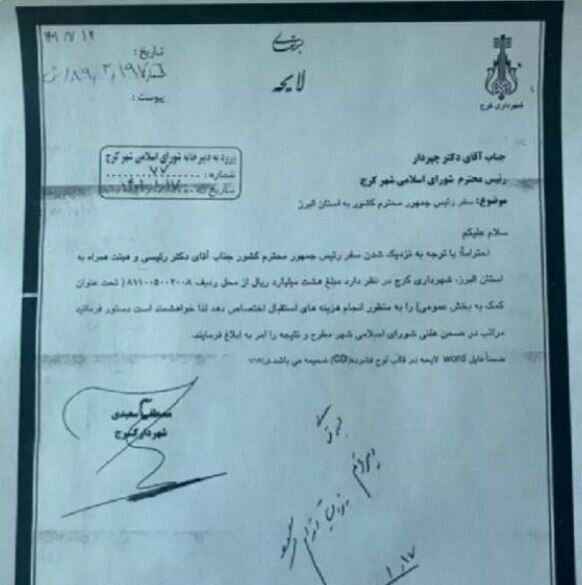 تاریخ:
شماره:
پیوست:
لایحه
شهرداری کرج
ورود به دبیرخانه شورای اسلامی شهر کرج
شماره: ۷۷
تاریخ: ۱۴۰۱.۱.۱۷
جناب آقای دکتر چپردار
رئیس محترم شورای اسلامی شهر کرج
موضوع: سفر رئیس جمهور محترم کشور به استان البرز
سلام علیکم
احتراماً؛ با توجه به نزدیک شدن سفر رئیس جمهور محترم کشور جناب آقای دکتر رئیسی و هیئت همراه به
استان البرز، شهرداری کرج در نظر دارد مبلغ هشت میلیارد ریال از محل ردیف ( تحت عنوان
کمک به بخش عمومی) را به منظور انجام هزینه های استقبال اختصاص دهد لذا خواهشمند است دستور فرمائید
مراتب در صحن علنی شورای اسلامی شهر مطرح و نتیجه را امر به ابلاغ فرمایند.
ضمناً فایل word لایحه در قالب لوح فشرده(CD) ضمیمه می باشد.
مصطفی سعیدی
شهردار کرج